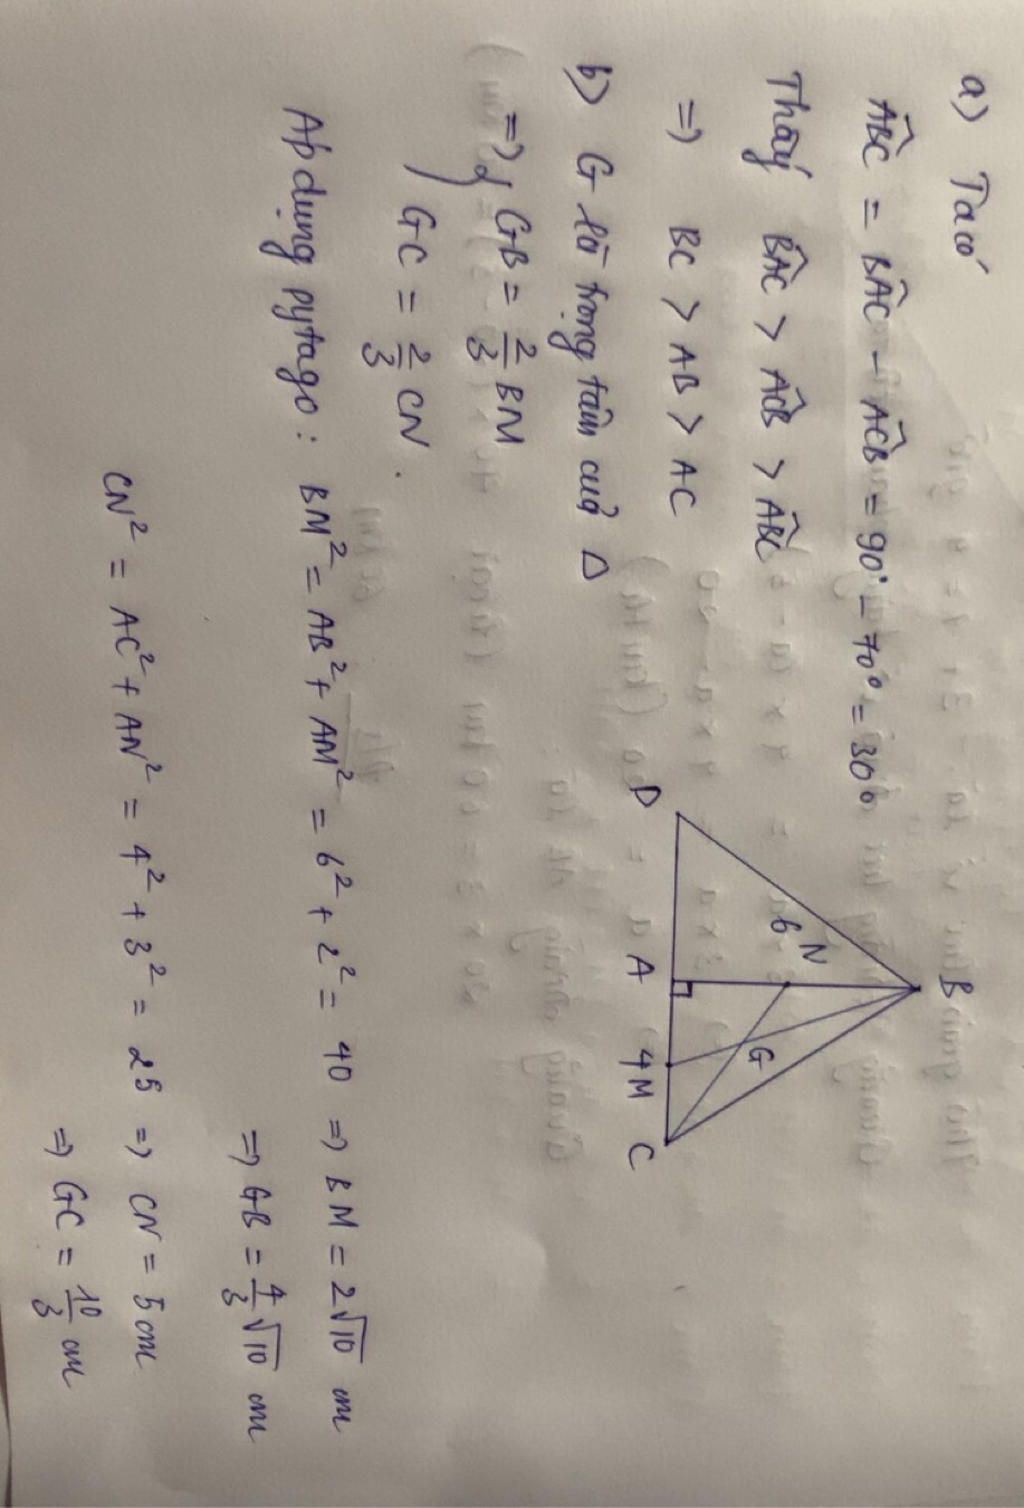 a) Ta có
ABĈ = BAĈ - ACB̂ = 90° - 70° = 30°
Thấy BAĈ > ACB̂ > ABĈ
=> BC > AB > AC
b) G là trọng tâm của Δ
=> { GB = 2/3 BM
GC = 2/3 CN.
Áp dụng pytago: BM² = AB² + AM² = 6² + 2² = 40 => BM = 2√10 cm
=> GB = 4/3 √10 cm
CN² = AC² + AN² = 4² + 3² = 25 => CN = 5 cm
=> GC = 10/3 cm
B
6 N
G
D A 4 M C